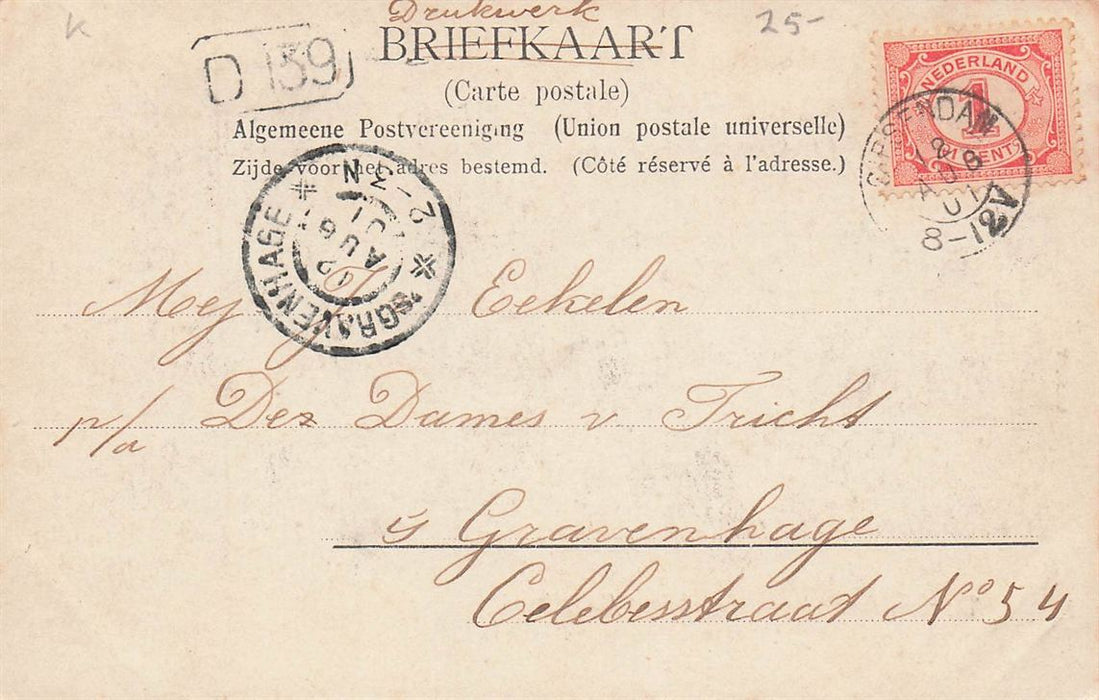 K
Drukwerk
25-
BRIEFKAART
D 159
(Carte postale)
Algemeene Postvereeniging (Union postale universelle)
Zijde voor het adres bestemd. (Côté réservé à l'adresse.)
NEDERLAND
1
CENT
AUG
01
8-12V
'SGRAVENHAGE
12
AUG
01
2-3 N
Mej Eekelen
p/a Dez Dames v Tricht
's Gravenhage
Celebesstraat No 54